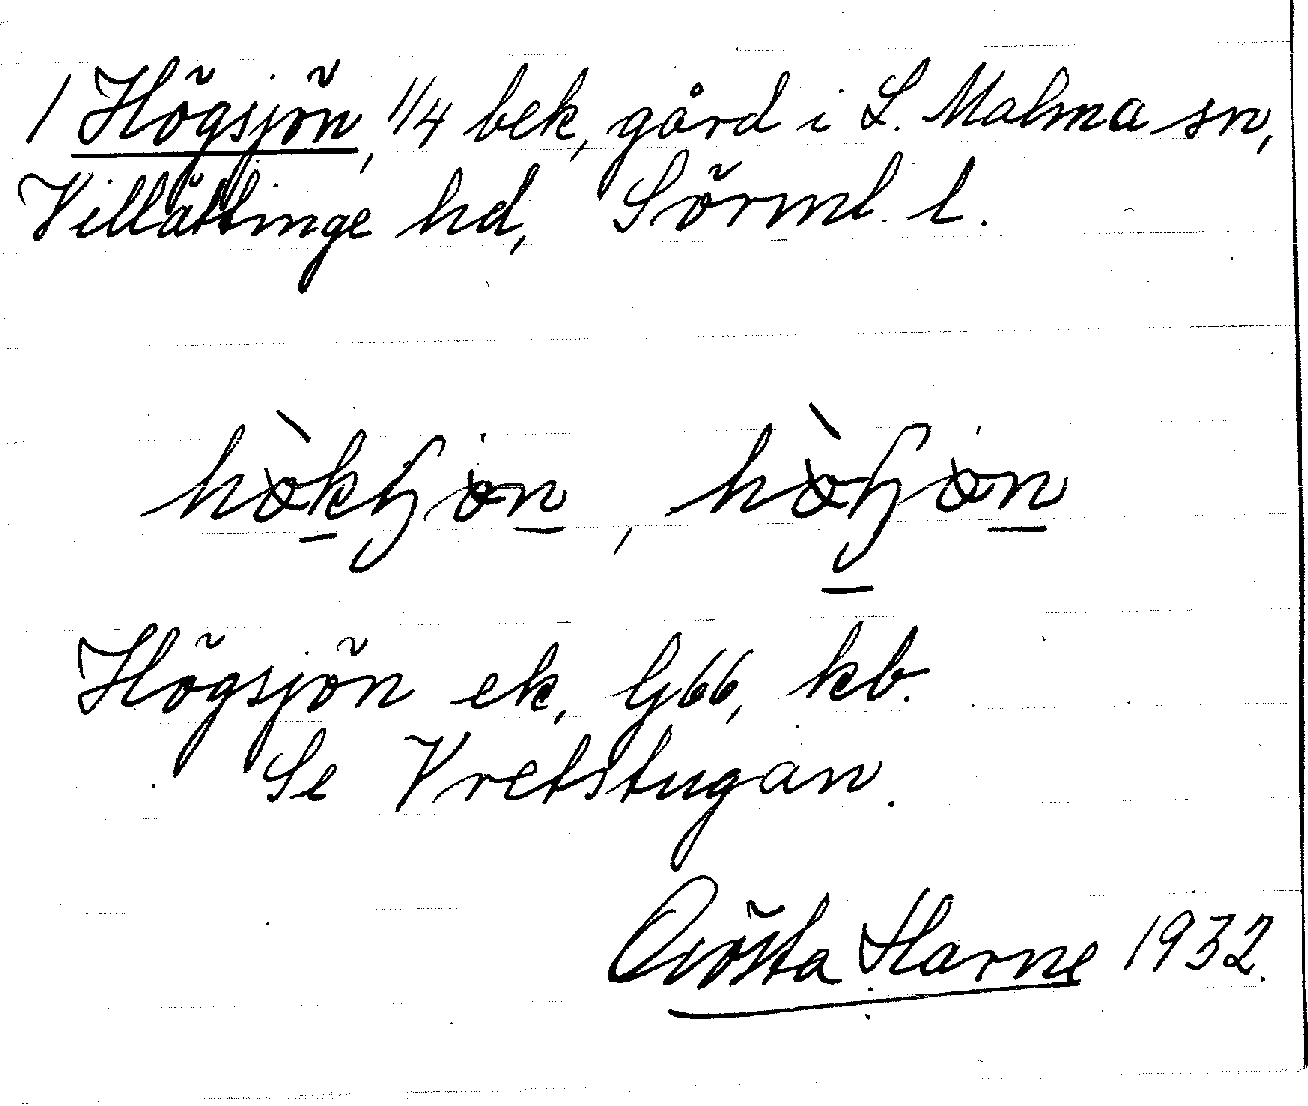 1 Högsjön, 1/4 bek, gård i L. Malma sn,
Villåttinge hd, Sörml. l.
Högsjön ek, G66, kb.
Se Vretstugan.
Gösta Harne 1932.